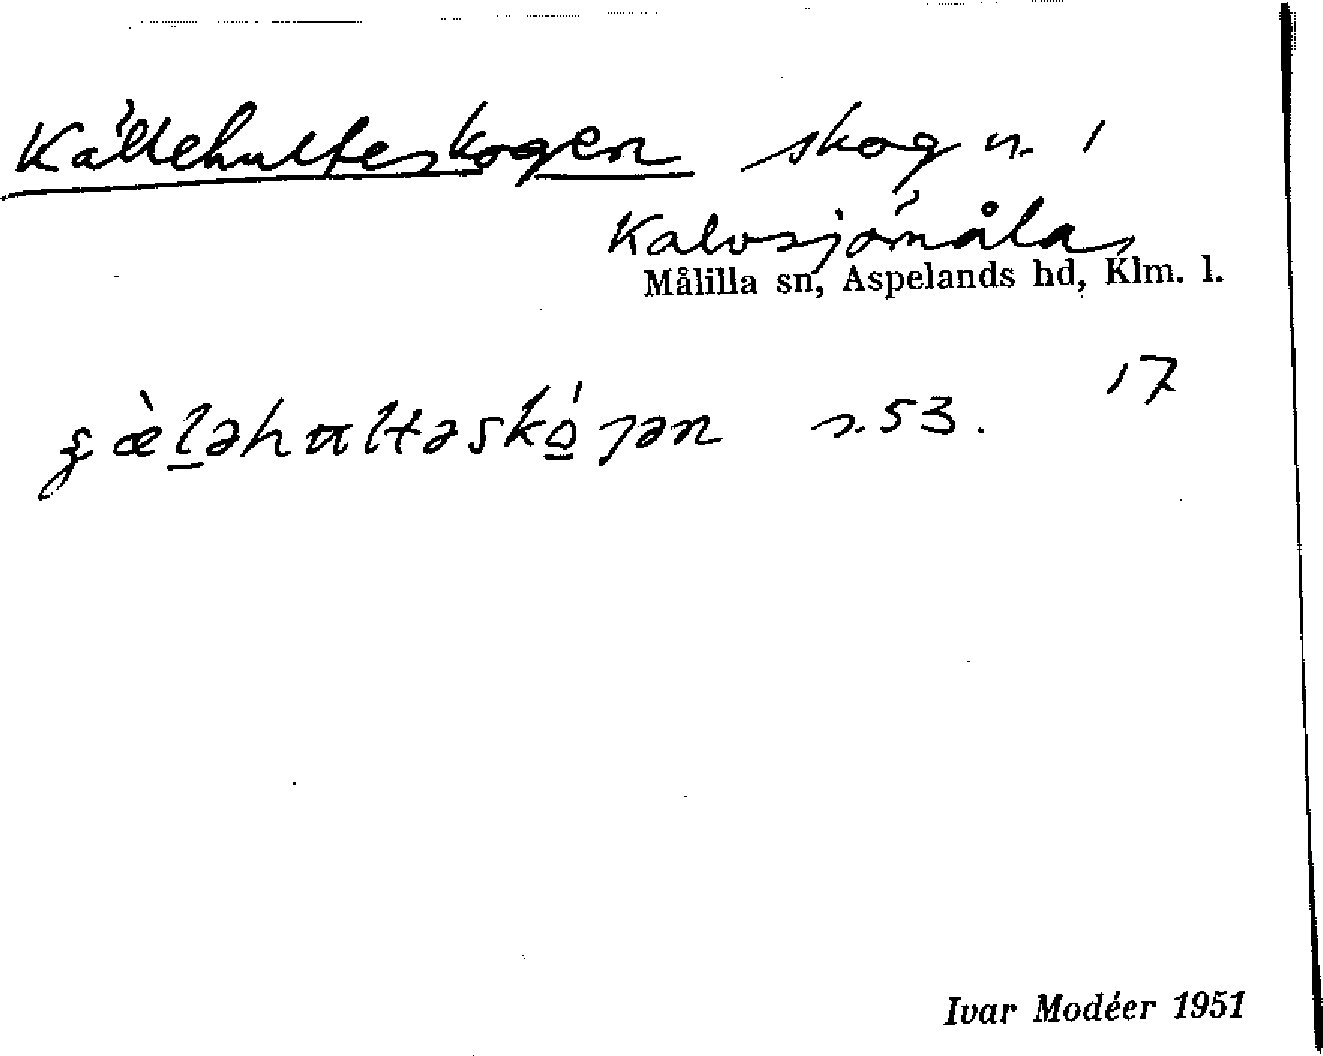 Källehulteskogen skog n. 1
Kalvsjömåla,
Målilla sn, Aspelands hd, Klm. l.
17
s. 53.
Ivar Modéer 1951